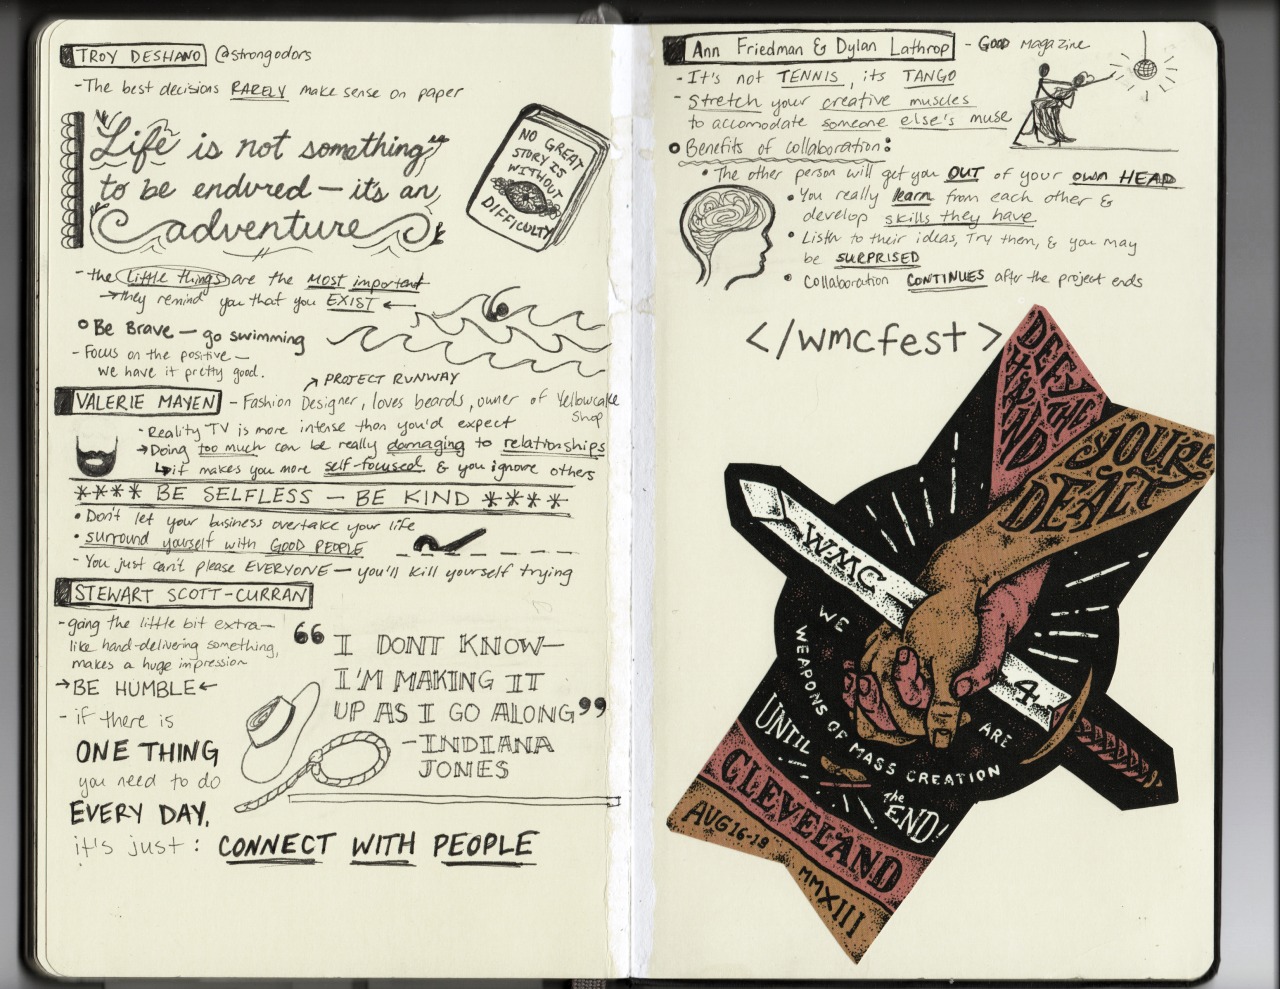 TROY DESHANO @strongodors
- The best decisions RARELY make sense on paper
Life is not something
to be endured — it's an
adventure
NO GREAT
STORY IS
WITHOUT
DIFFICULTY
- the little things are the MOST important
→ they remind you that you EXIST ←
Be Brave — go swimming
- Focus on the positive —
we have it pretty good.
↗ PROJECT RUNWAY
VALERIE MAYEN - Fashion Designer, loves beards, owner of Yellowcake
Shop
- Reality TV is more intense than you'd expect
→ Doing too much can be really damaging to relationships
↳ it makes you more self-focused & you ignore others
**** BE SELFLESS — BE KIND ****
• Don't let your business overtake your life
• surround yourself with GOOD PEOPLE
- You just can't please EVERYONE — you'll kill yourself trying
STEWART SCOTT-CURRAN
- going the little bit extra —
like hand-delivering something,
makes a huge impression
→ BE HUMBLE ←
- if there is
ONE THING
you need to do
EVERY DAY,
it's just: CONNECT WITH PEOPLE
“ I DONT KNOW —
I'M MAKING IT
UP AS I GO ALONG ”
- INDIANA
JONES
Ann Friedman & Dylan Lathrop - GOOD Magazine
- It's not TENNIS, its TANGO
- Stretch your creative muscles
to accomodate someone else's muse
Benefits of collaboration:
• The other person will get you OUT of your own HEAD
• You really learn from each other &
develop skills they have
• Listn to their ideas, Try them, & you may
be SURPRISED
• Collaboration CONTINUES after the project ends
</wmcfest>
DEFY THE
HAND
YOU'RE
DEALT
WMC
4
WE
ARE
WEAPONS OF MASS CREATION
UNTIL
The
END!
CLEVELAND
AUG 16-18
MMXIII